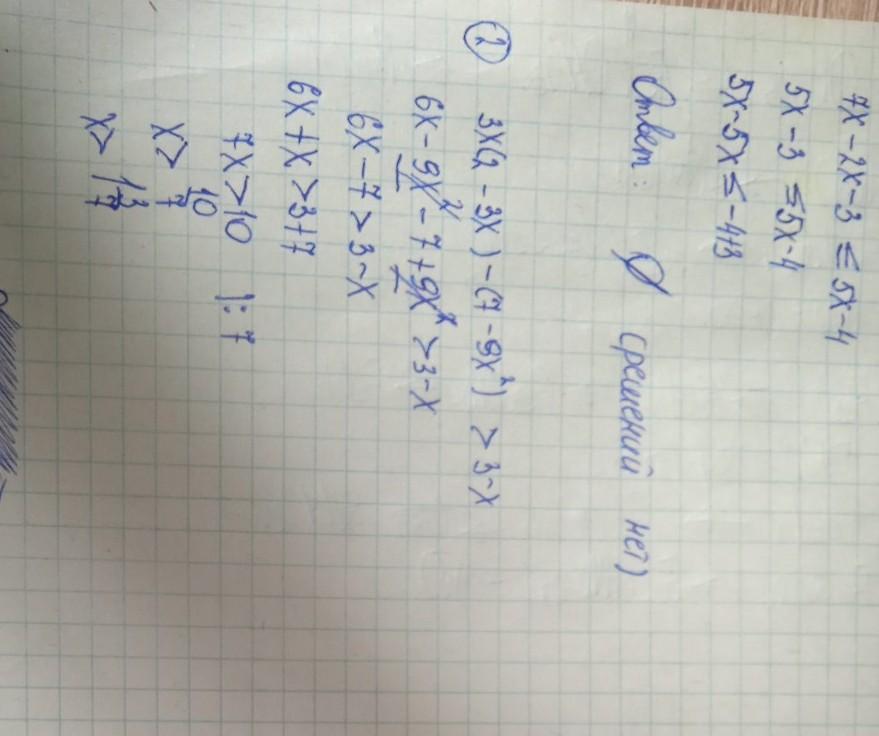 7x - 2x - 3 ≤ 5x - 4
5x - 3 ≤ 5x - 4
5x - 5x ≤ -4+3
Ответ: ∅ (решений нет)
② 3x(2 - 3x) - (7 - 9x²) > 3 - x
6x - 9x² - 7 + 9x² > 3 - x
6x - 7 > 3 - x
6x + x > 3 + 7
7x > 10 |: 7
x > 10/7
x > 1 3/7